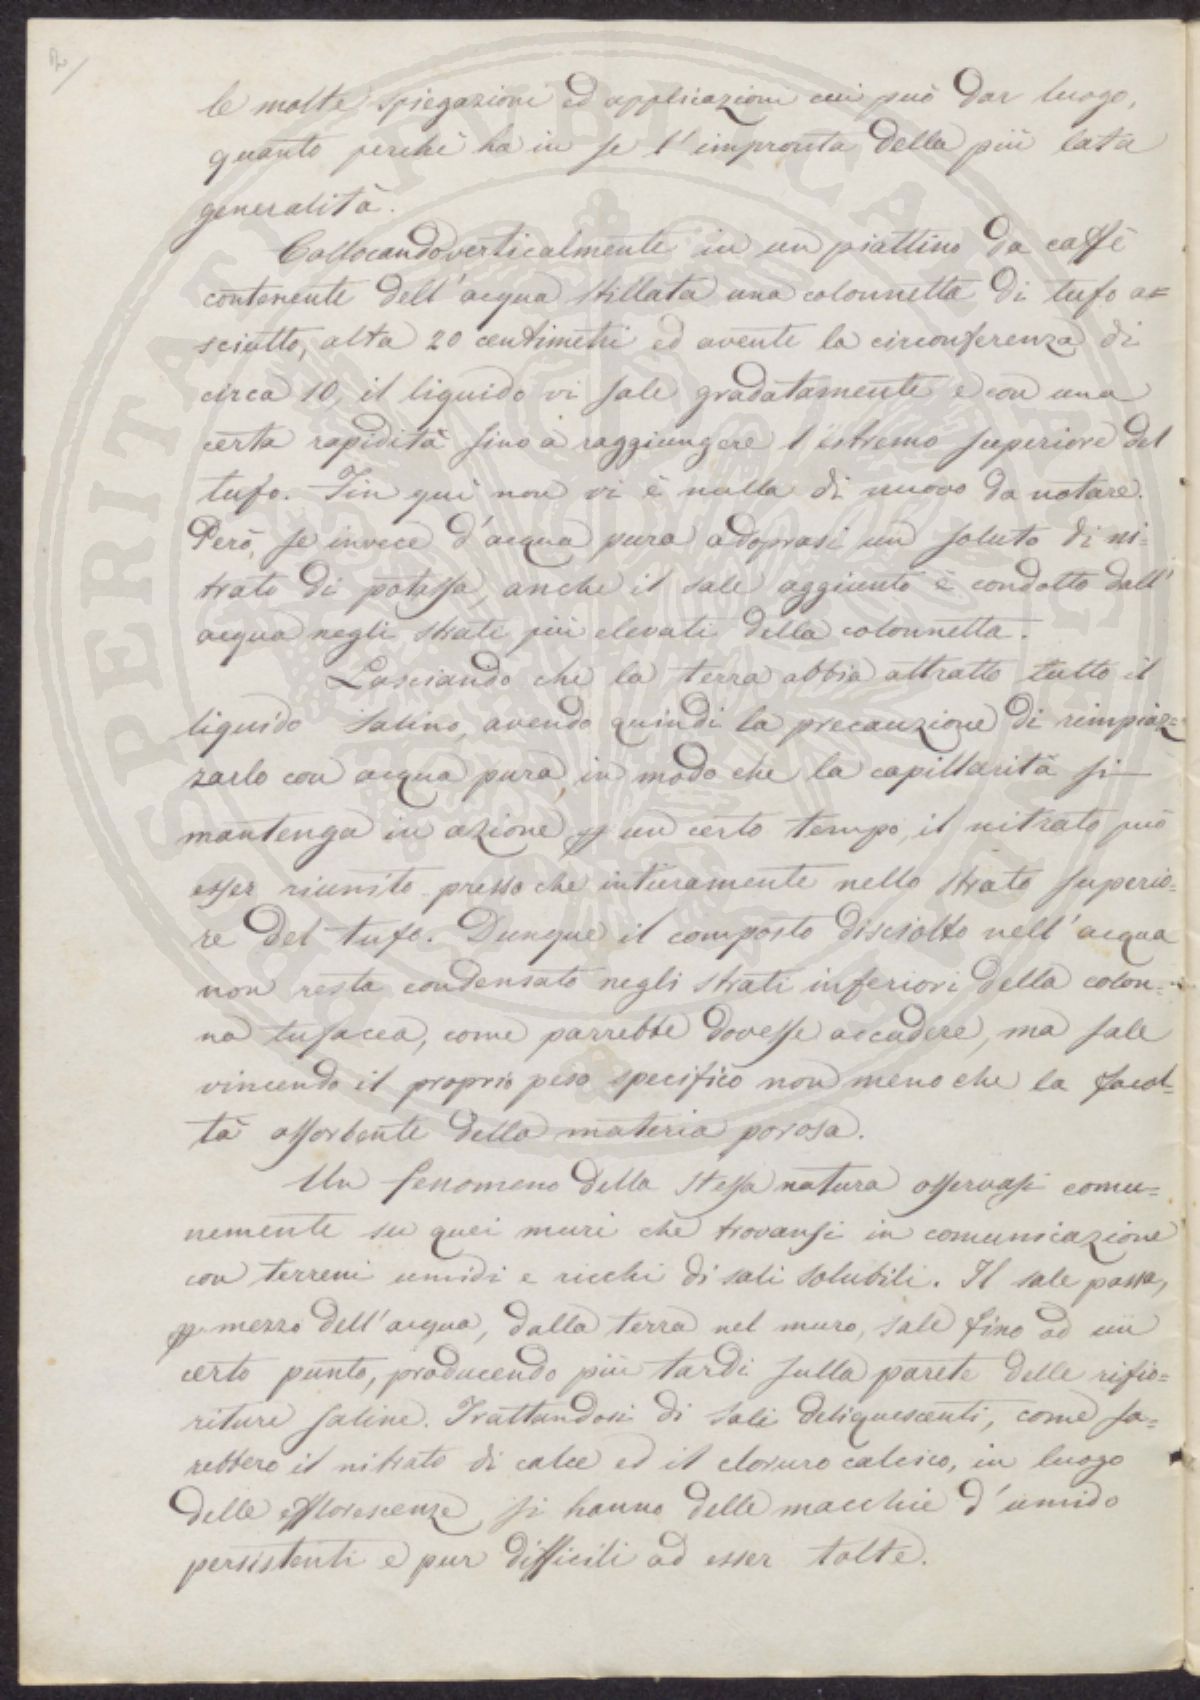 2/
le molte spiegazioni ed applicazioni cui può dar luogo,
quanto perchè ha in se l'impronta della più lata
generalità.
Collocando verticalmente in un piattino da caffè
contenente dell'acqua stillata una colonnetta di tufo a=
sciutto, alta 20 centimetri ed avente la circonferenza di
circa 10, il liquido vi sale gradatamente e con una
certa rapidità fino a raggiungere l'estremo superiore del
tufo. Fin quì non vi è nulla di nuovo da notare.
Però, se invece d'acqua pura adoprasi un soluto di ni=
trato di potassa, anche il sale aggiunto è condotto dall'
acqua negli strati più elevati della colonnetta.
Lasciando che la terra abbia attratto tutto il
liquido salino, avendo quindi la precauzione di rimpiaz=
zarlo con acqua pura, in modo che la capillarità si
mantenga in azione p un certo tempo, il nitrato può
esser riunito presso che intieramente nello strato superio=
re del tufo. Dunque il composto disciolto nell'acqua
non resta condensato negli strati inferiori della colon=
na tufacea, come parrebbe dovesse accadere, ma sale
vincendo il proprio peso specifico non meno che la facol=
tà assorbente della materia porosa.
Un fenomeno della stessa natura osservasi comu=
nemente su quei muri che trovansi in comunicazione
con terreni umidi e ricchi di sali solubili. Il sale passa,
p mezzo dell'acqua, dalla terra nel muro, sale fino ad un
certo punto, producendo più tardi sulla parete delle rifio=
riture saline. Trattandosi di sali deliquescenti, come sa=
rebbero il nitrato di calce ed il cloruro calcico, in luogo
delle efflorescenze si hanno delle macchie d'umido
persistenti e pur difficili ad esser tolte.
PROSPERITATI PVBLICAE AVGENDAE